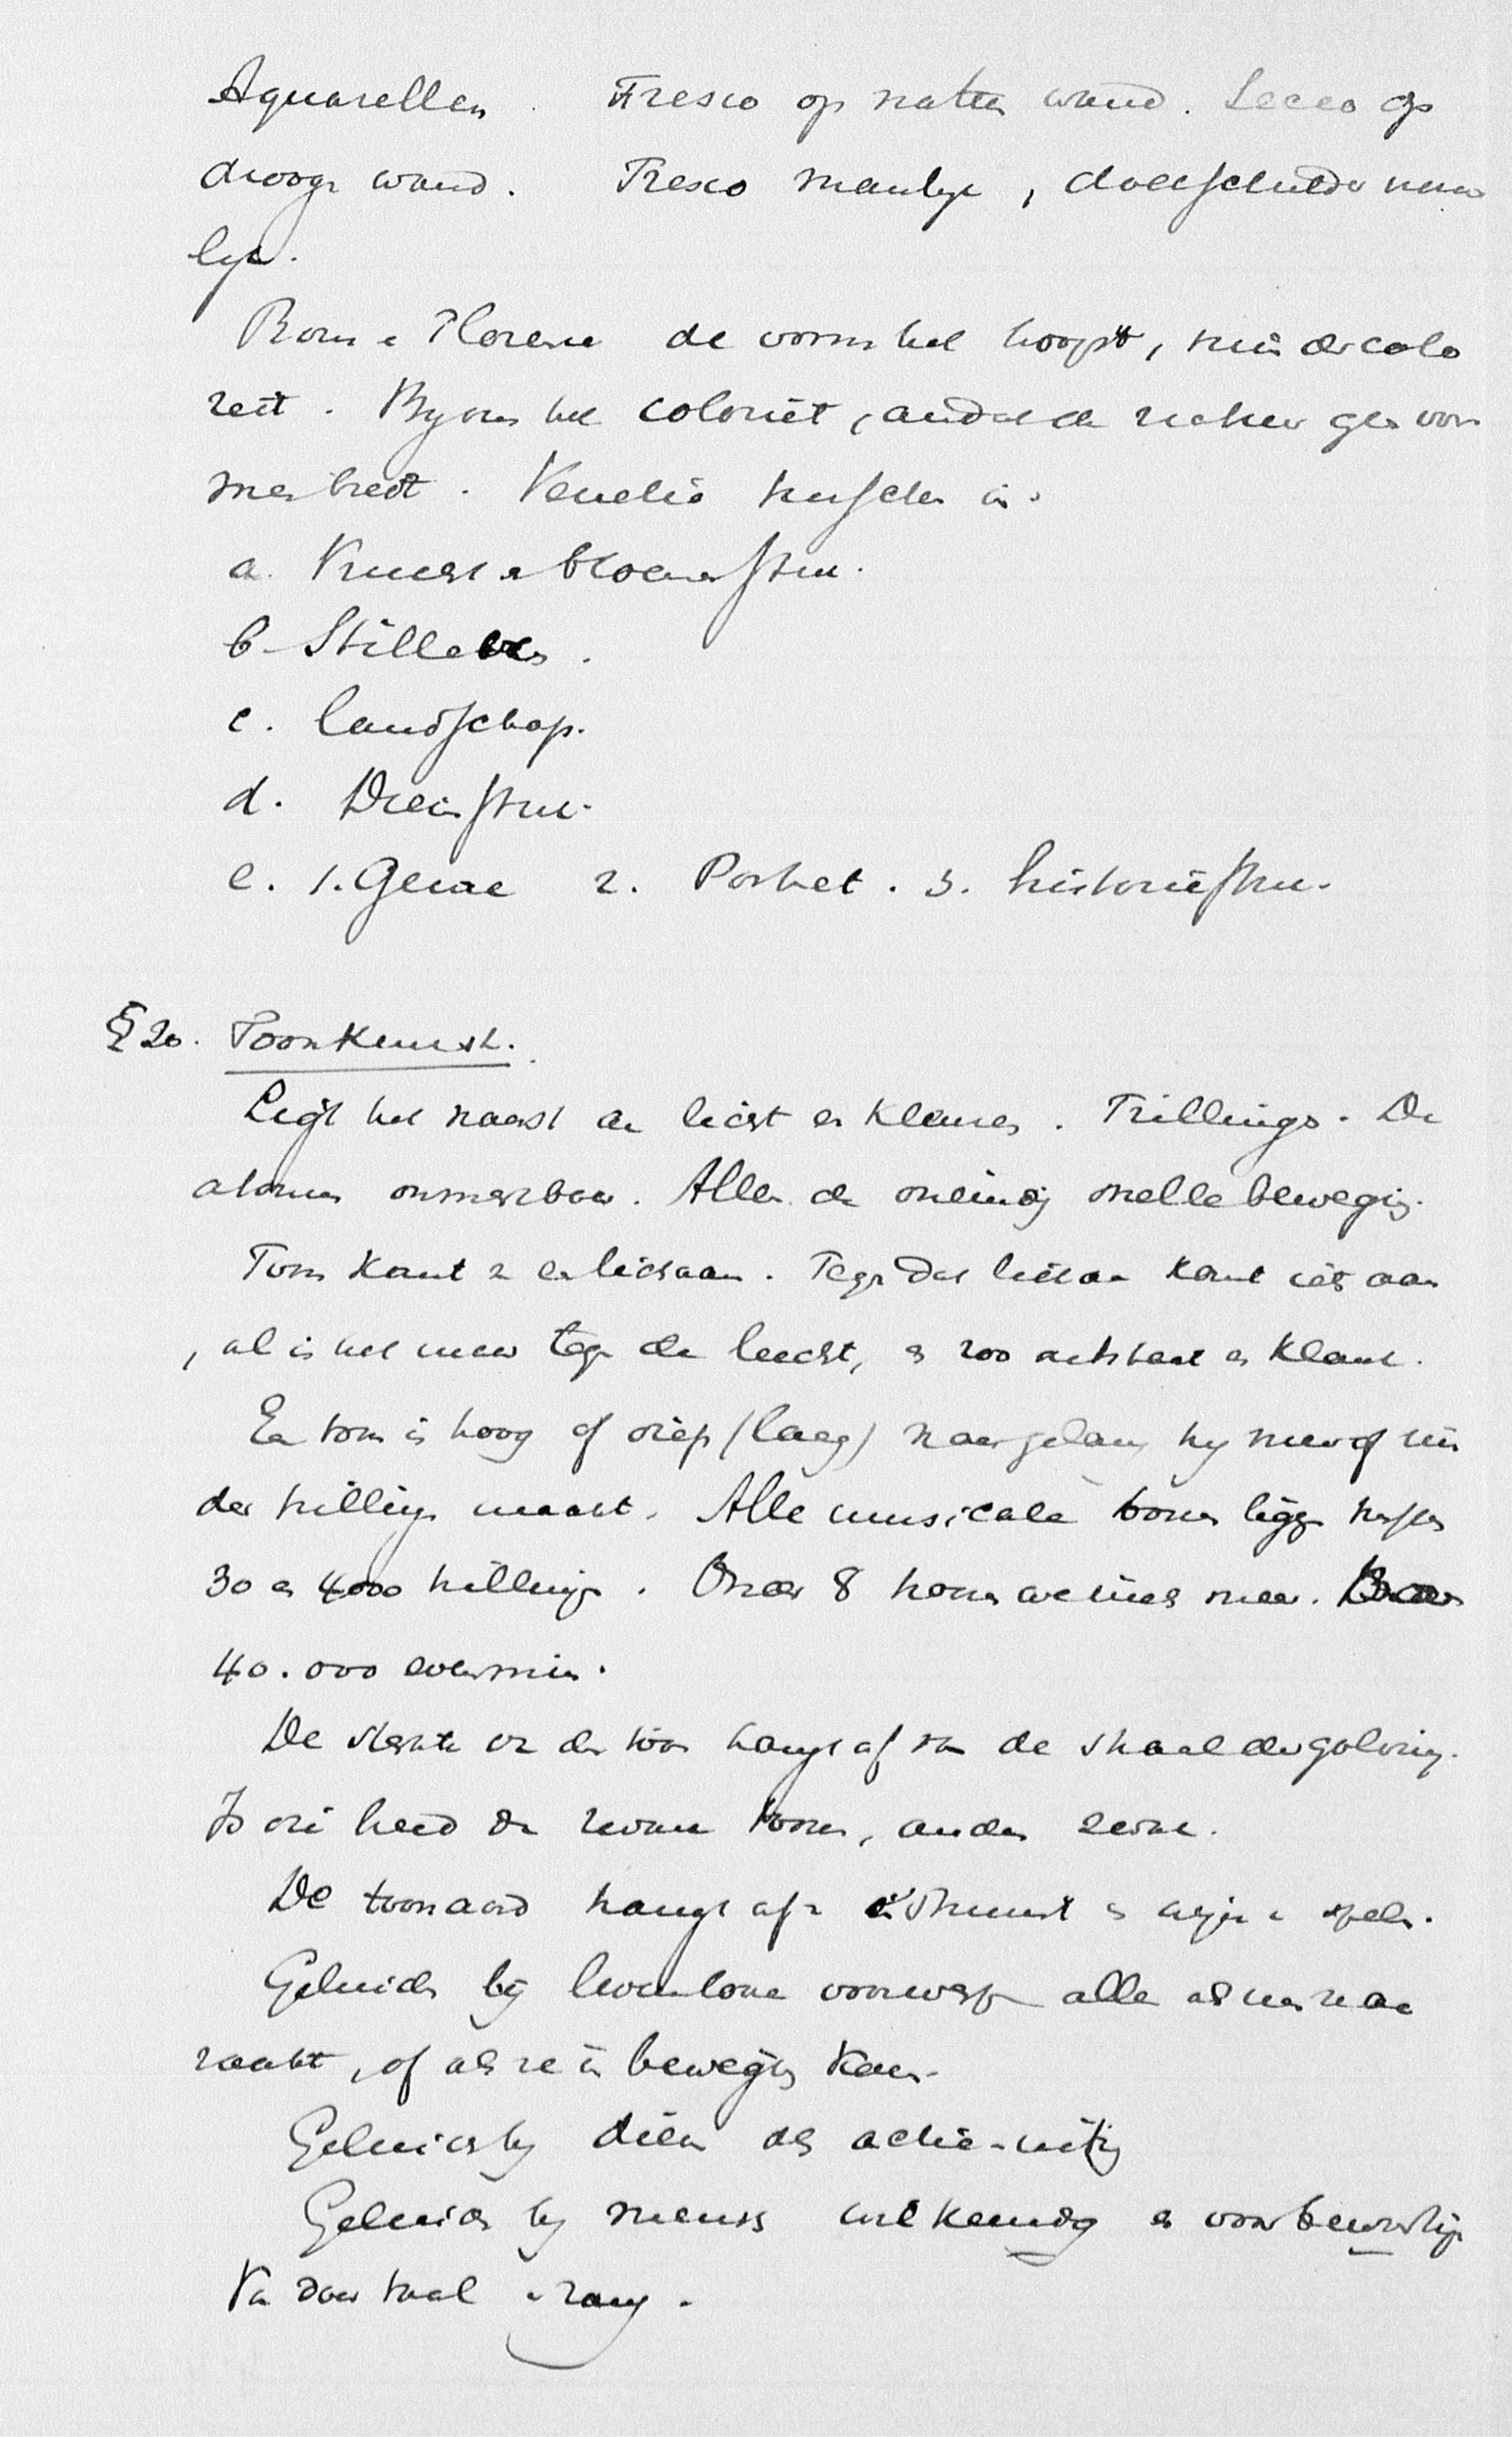 Aquarellen. Fresco op natten wand. Secco op
droogen wand. Fresco manlijk, doekschilderen vrouw
lijk.
Rome en Florence de vorm het hoogst, minder colo
riet. By ons het coloriet, zodat de
Rembrandt. Venetie tusschen in.
a. Vrucht en bloemstuk.
b Stilleven.
c. landschap.
d. Dierstuk.
e. 1. Genre 2. Portret. 3. historiestuk.
§ 20. Toonkunst.
Ligt het naast den lichten klank. Trillingen. De
atomen onmerkbaar. Alleen de oneindig snelle beweging.
Toon komt uit een lichaam. Tegen dat lichaam komt iets aan
, al is het maar tegen de lucht, en zoo ontstaat een klank.
Een toon is hoog of diep (laag) naar gelang hij meer of min
der trillingen maakt. Alle musicale tonen liggen tusschen
30 en 4000 trillingen. Onder 8 horen we niets meer. Boven
40.000 evenmin.
De sterkte van den toon hangt af van de straal der golving.
Is die breed dan zware toon, anders zwak.
De toonaard hangt af van 't instrument en wijze van spelen.
Geluid bij levenloze voorwerpen alleen als men ze aan
raakt, of als ze in beweging komen.
Geluid bij dieren als actie-uiting
Geluid bij mensch welkundig en voorbewustelijk
Van daar taal en zang.